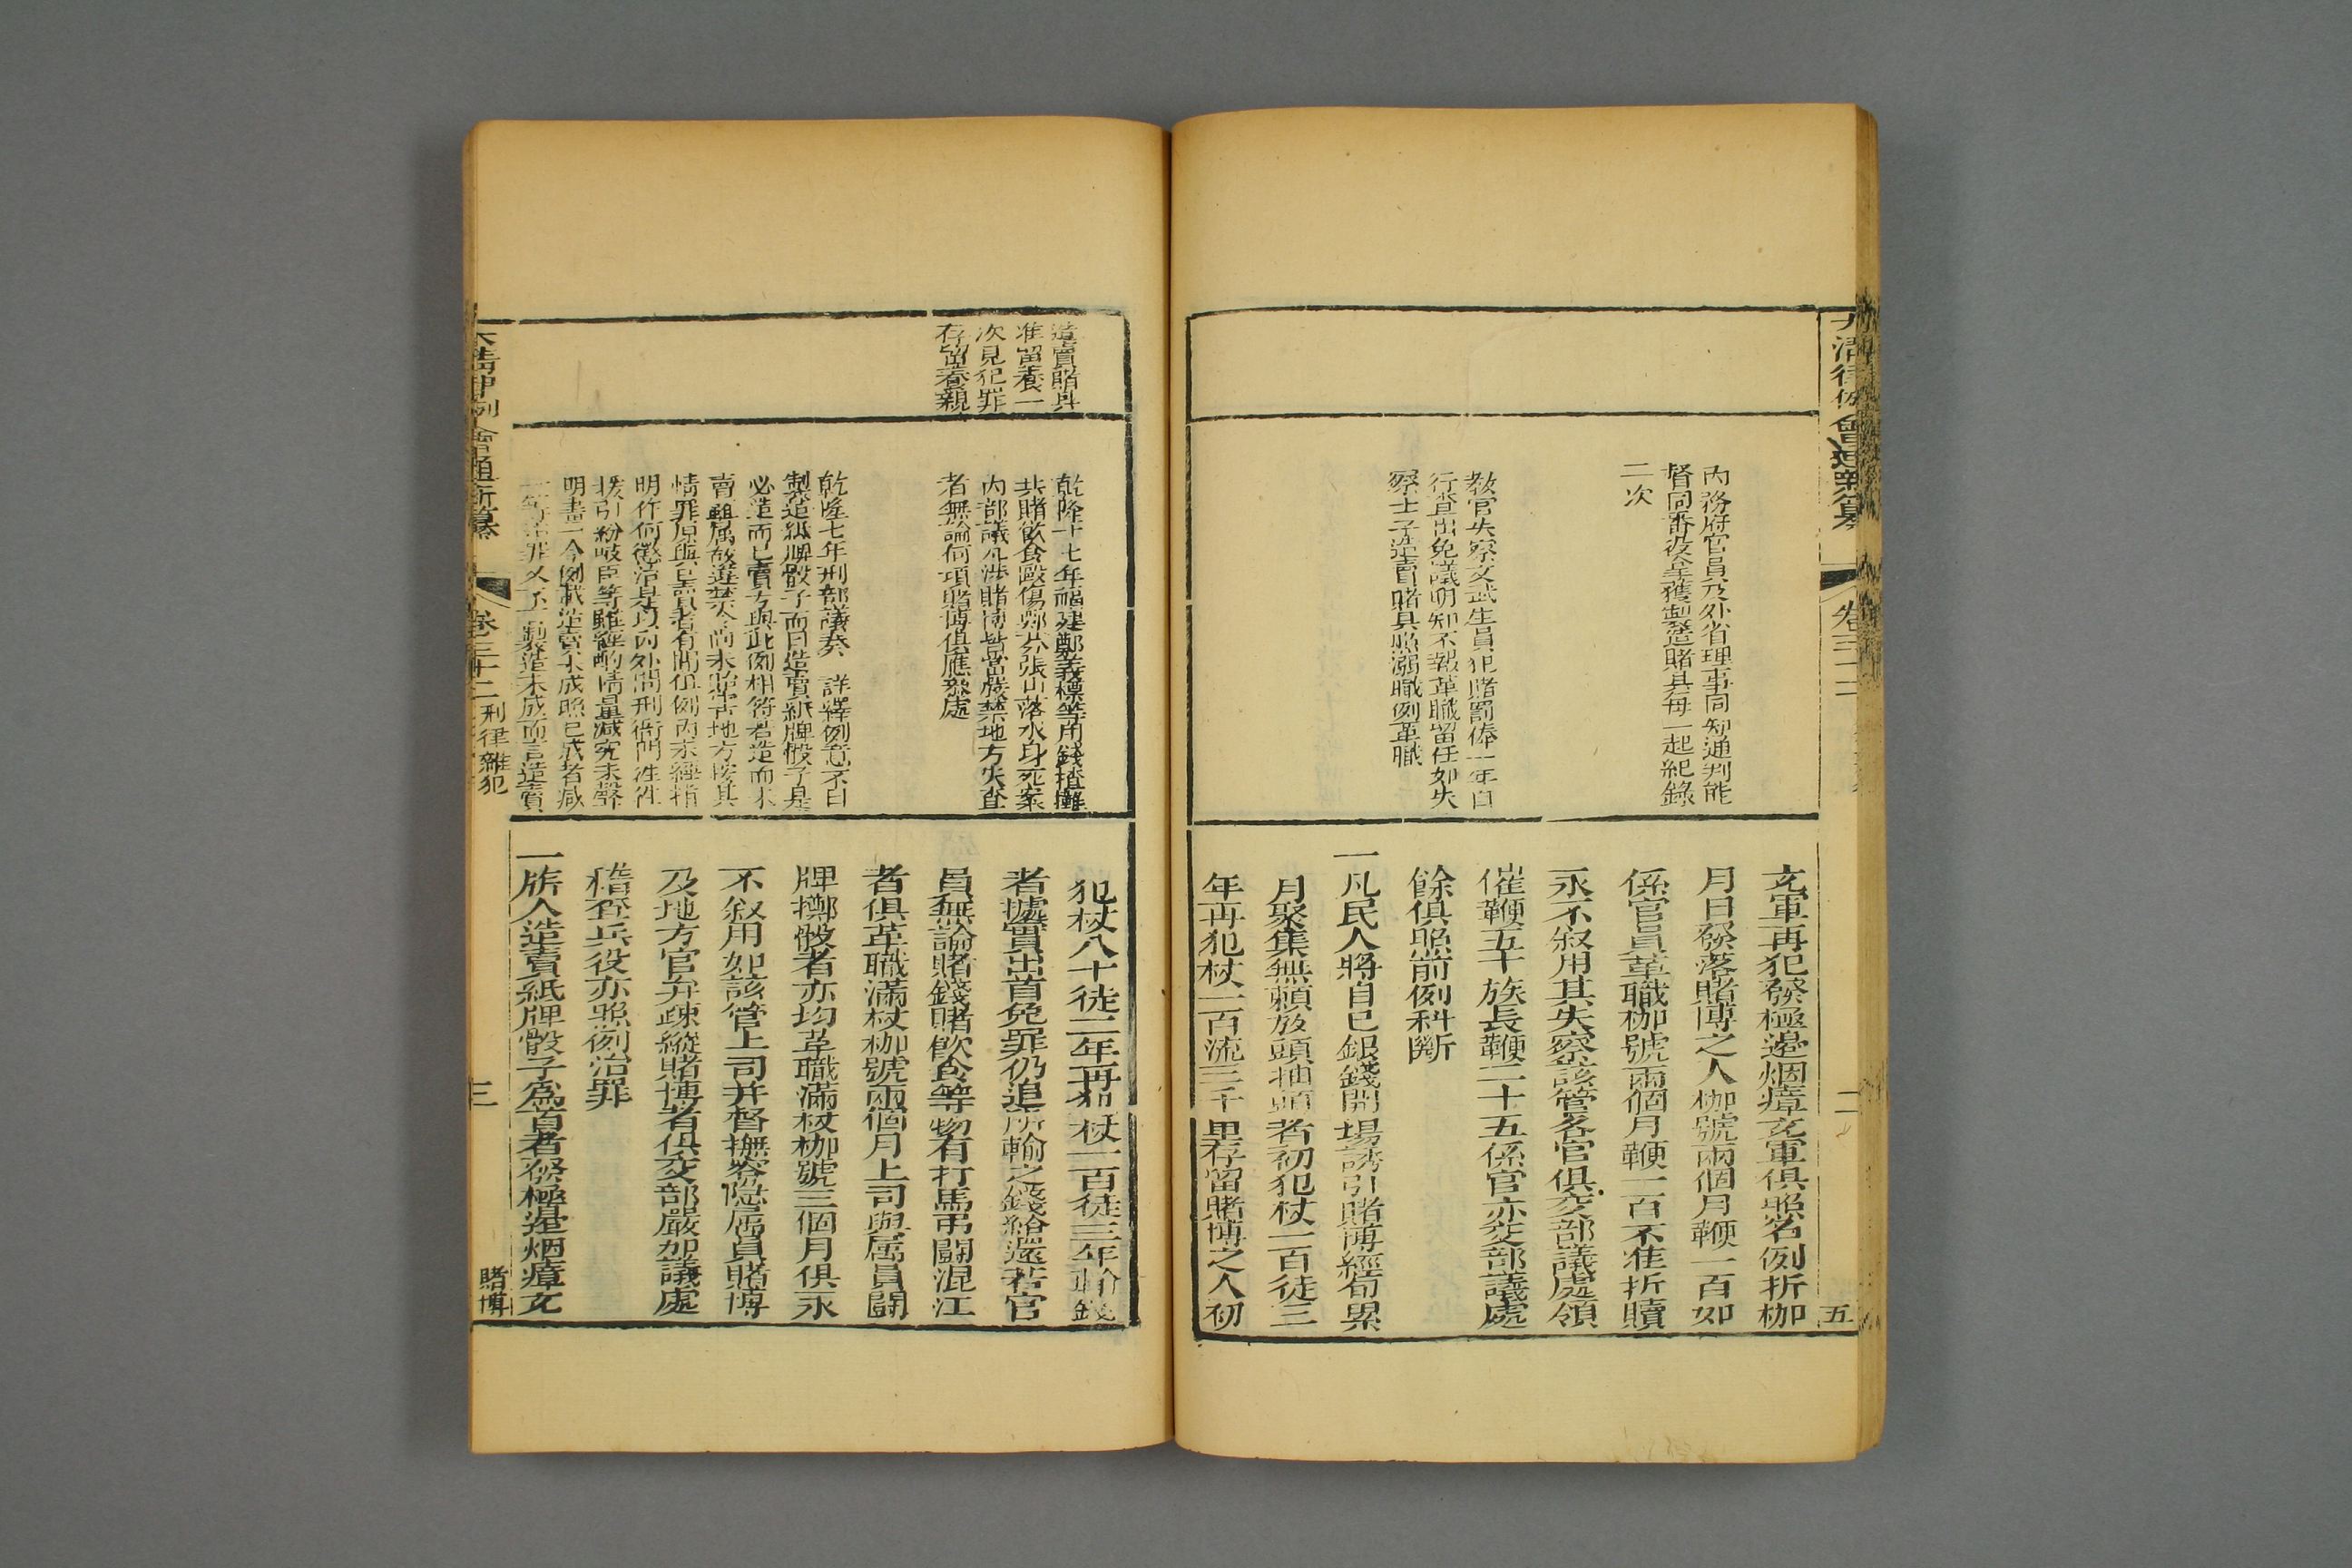 大清律例會通新纂
卷三十二
二
五
內務府官員及外省理事同知通判能
督同番役拿獲製造賭具每一起紀錄
二次
教官失察文武生員犯賭罰俸一年自
行查出免議明知不報革職留任如失
察士子造賣賭具照溺職例革職
充軍再犯發極邊烟瘴充軍俱照名例折枷
月日發落賭博之人枷號兩個月鞭一百如
係官員革職枷號兩個月鞭一百不准折贖
永不叙用其失察該管各官俱交部議處領
催鞭五十族長鞭二十五係官亦交部議處
餘俱照前例科斷
一凡民人將自己銀錢開場誘引賭博經旬累
月聚集無賴放頭抽頭者初犯杖一百徒三
年再犯杖一百流三千里存留賭博之人初
造賣賭具
准留養一
次見犯罪
存留養親
乾隆十七年福建鄭義標等用錢揸攤
共賭飲食毆傷鄭芬張山落水身死案
內部議凡涉賭博皆當嚴禁地方失查
者無論何項賭博俱應察處
乾隆七年刑部議奏 詳繹例意不曰
製造紙牌骰子而曰造賣紙牌骰子是
必造而已賣方與此例相符若造而未
賣雖属故違禁令尚未貽害地方按其
情罪原與已賣者有間但例內未經指
明作何懲治是以向外問刑衙門往往
援引紛岐臣等雖經酌情量減究未聲
明畫一今例載造賣未成照已成者減
一等治罪
製造未成而言造賣
犯杖八十徒二年再犯杖一百徒三年輸錢
者據實出首免罪仍追所輸之錢給還若官
員無論賭錢賭飲食等物有打馬弔鬪混江
者俱革職滿杖枷號兩個月上司與属員鬪
牌擲骰者亦均革職滿杖枷號三個月俱永
不叙用如該管上司并督撫容隱属員賭博
及地方官弁疎縱賭博者俱交部嚴加議處
稽查兵役亦照例治罪
一旂人造賣紙牌骰子為首者發極邊烟瘴充
大清律例會通新纂
卷三十二 刑律雜犯
三
賭博